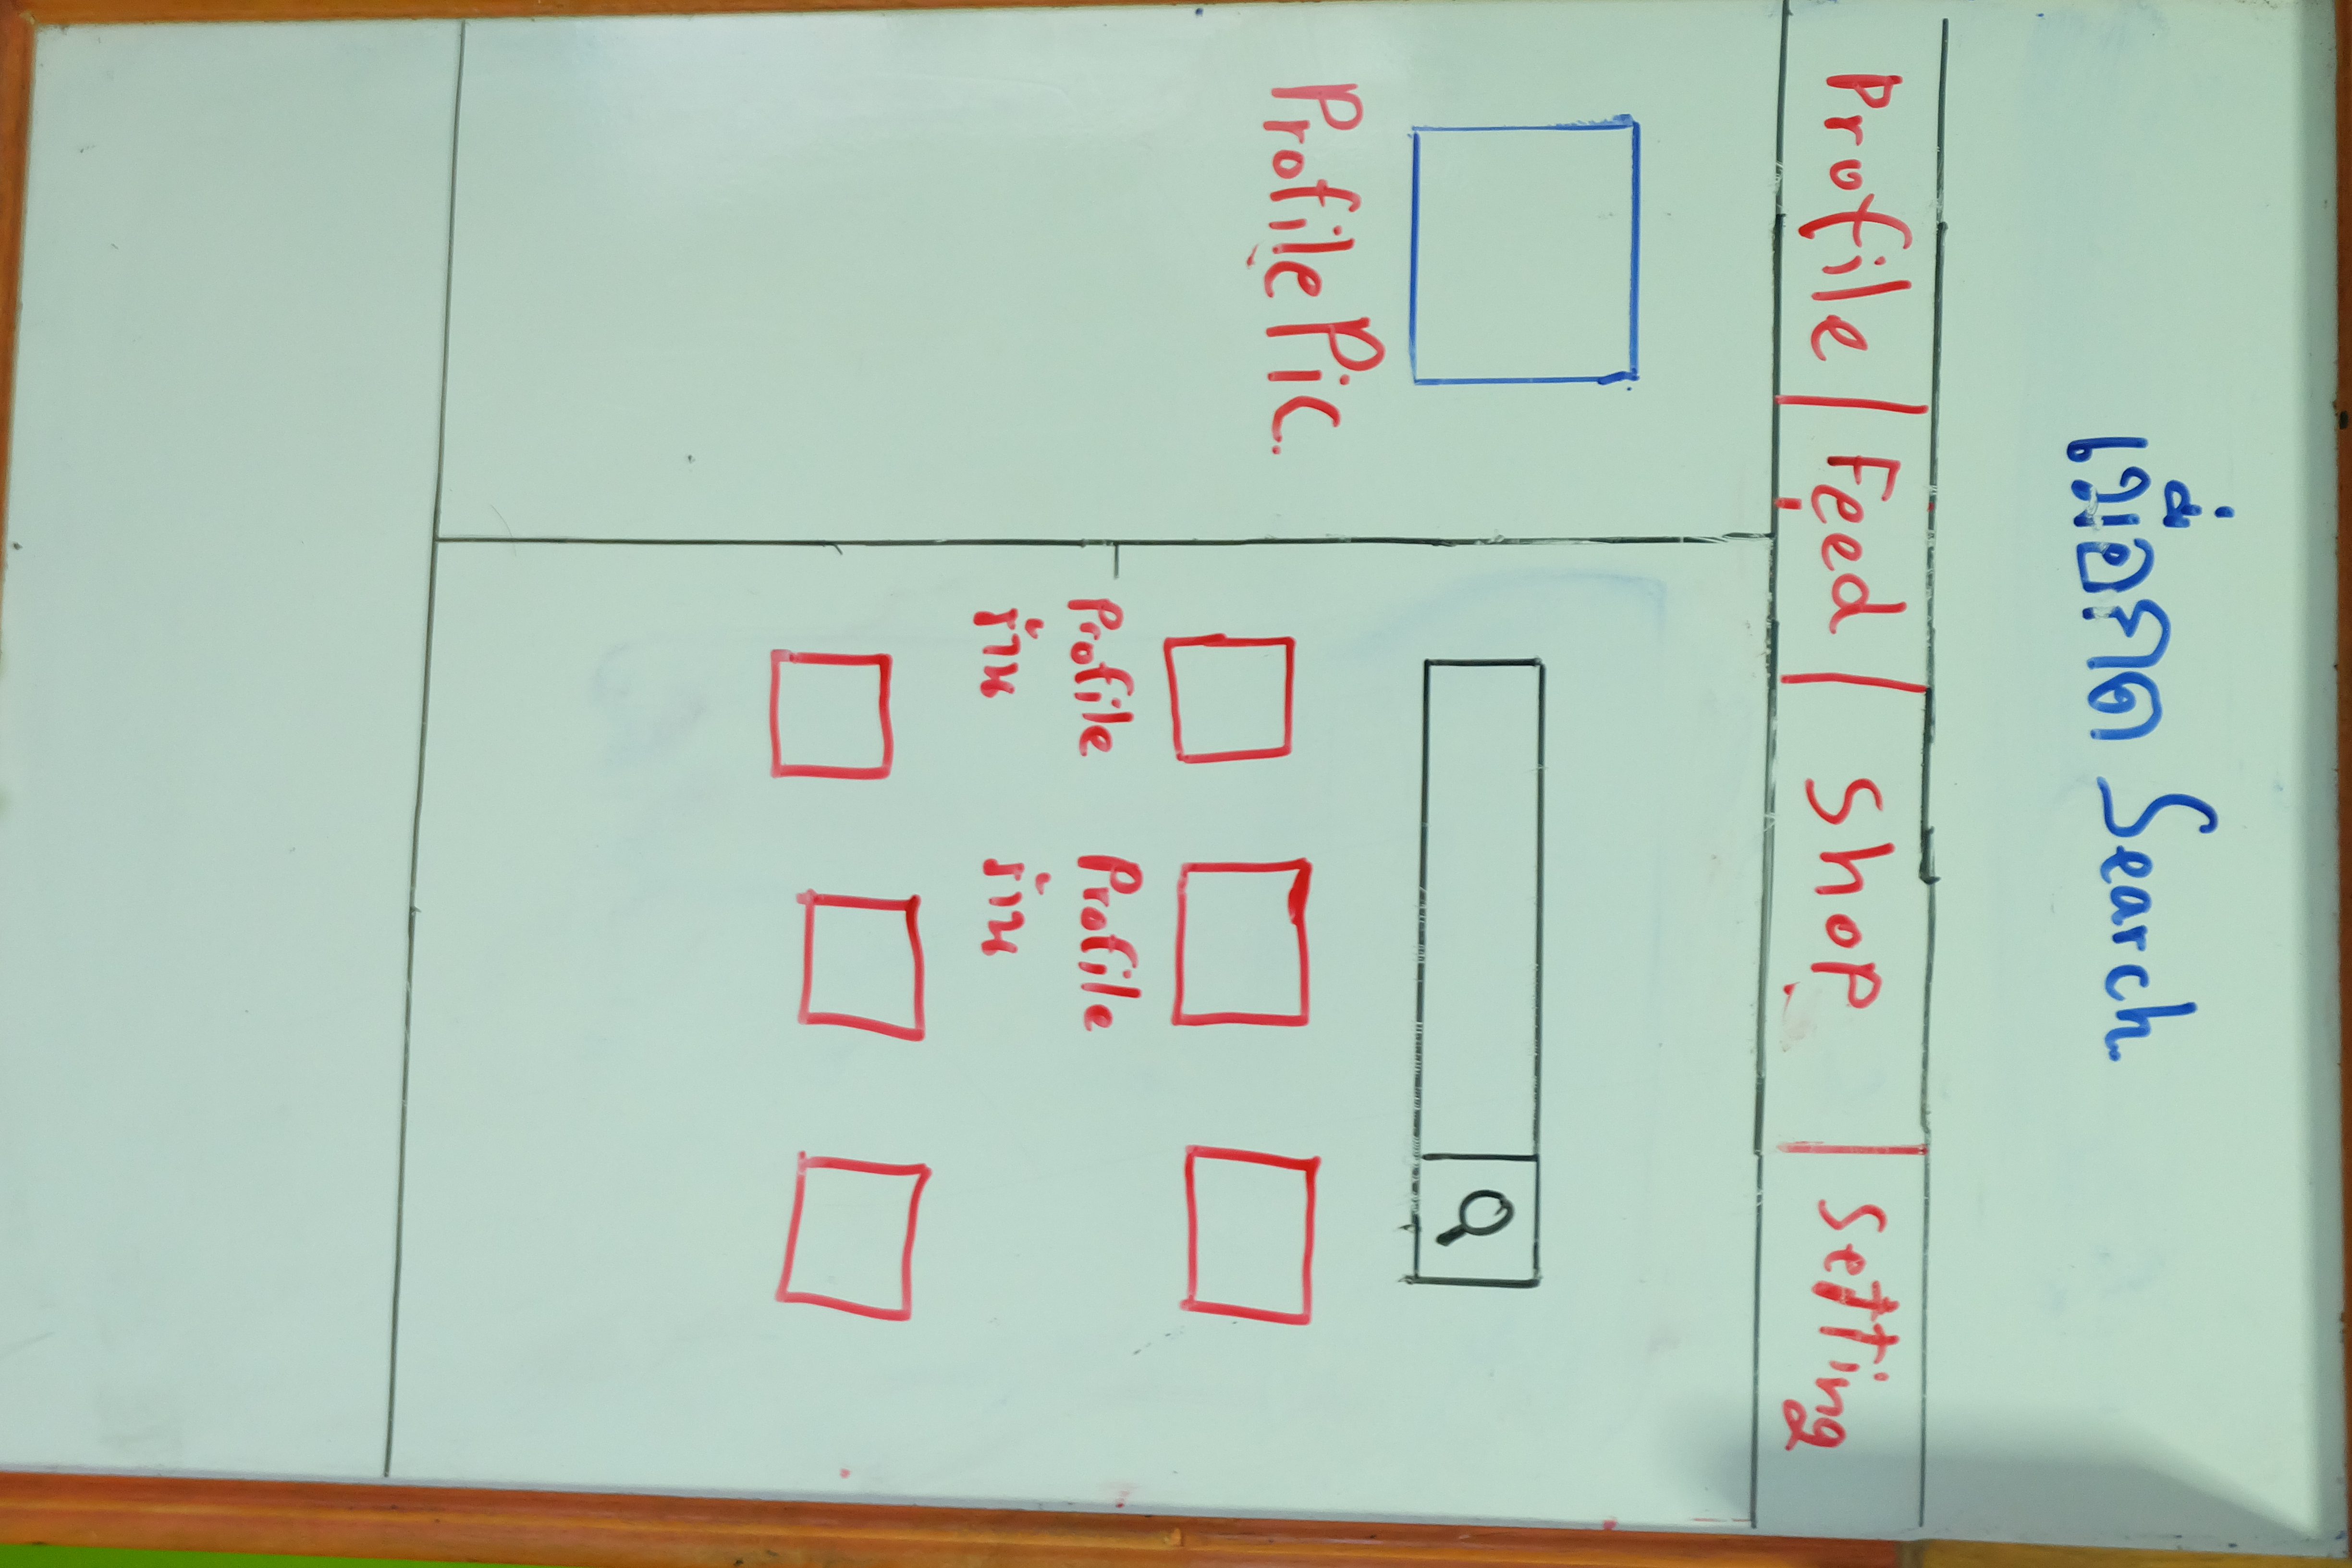 เมื่อกด Search.
Profile | Feed | Shop | Setting
Profile Pic.
Profile Profile
ร้าน ร้าน